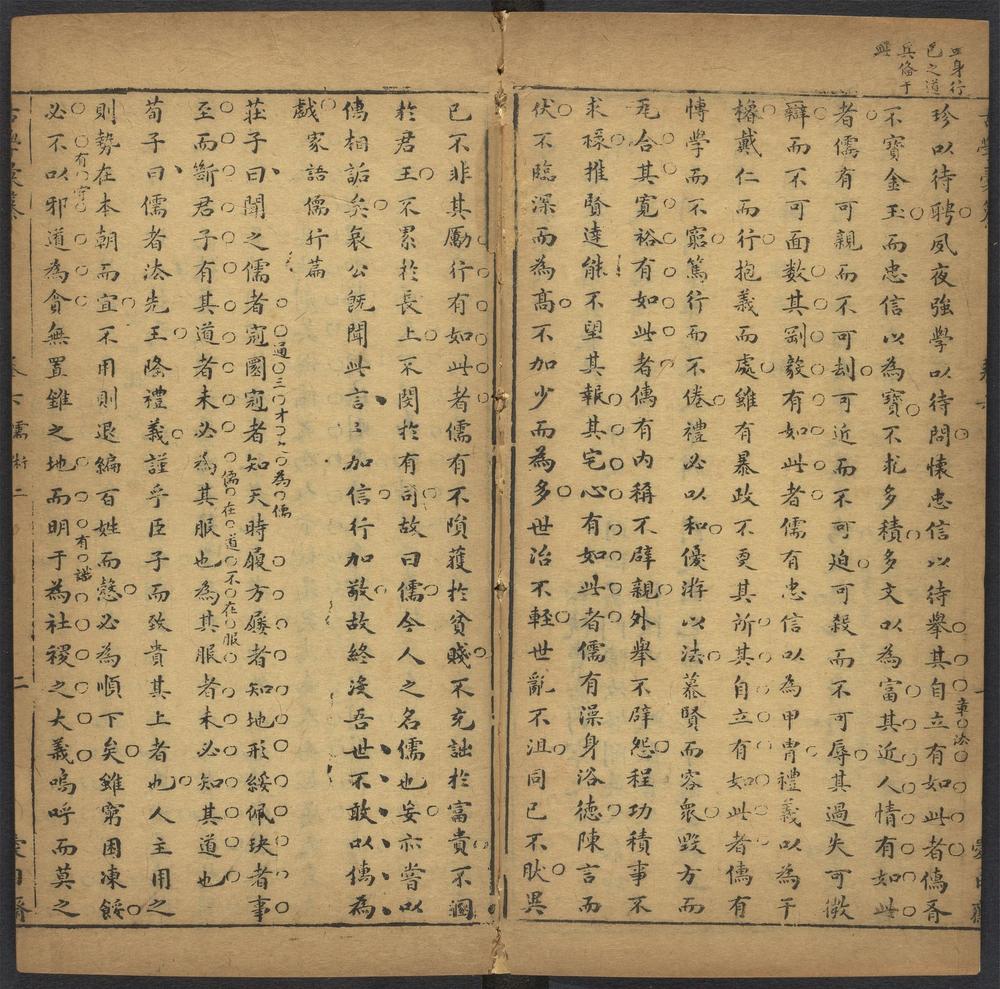 立身行
己之道
具備于
興
珍以待聘夙夜強學以待問懷忠信以待舉其自立有如此者儒有
章法
不寶金玉而忠信以為寶不祈多積多文以為富其近人情有如此
者儒有可親而不可刦可近而不可迫可殺而不可辱其過失可微
辯而不可面數其剛毅有如此者儒有忠信以為甲冑禮義以為干
櫓戴仁而行抱義而處雖有暴政不更其所其自立有如此者儒有
博學而不窮篤行而不倦禮必以和優游以法慕賢而容衆毀方而
瓦合其寬裕有如此者儒有內稱不辟親外舉不辟怨程功積事不
求祿推賢達能不望其報其宅心有如此者儒有澡身浴德陳言而
伏不臨深而為高不加少而為多世治不輕世亂不沮同己不非異
己不非其厲行有如此者儒有不隕穫於貧賤不充詘於富貴不溷
於君王不累於長上不閔於有司故曰儒今人之名儒也妄亦嘗以
儒相詬矣哀公既聞此言言加信行加敬故終沒吾世不敢以儒為
戲 家語儒行篇
通三才之為儒
莊子曰聞之儒者冠圜冠者知天時履方屨者知地形綬佩玦者事
儒在道不在服
至而斷君子有其道者未必為其服也為其服者未必知其道也
荀子曰儒者法先王隆禮義謹乎臣子而致貴其上者也人主用之
則勢在本朝而宜不用則退編百姓而慤必為順下矣雖窮困凍餒
有守 有識
必不以邪道為貪無置錐之地而明于為社稷之大義嗚呼而莫之
卷六 儒術二 二